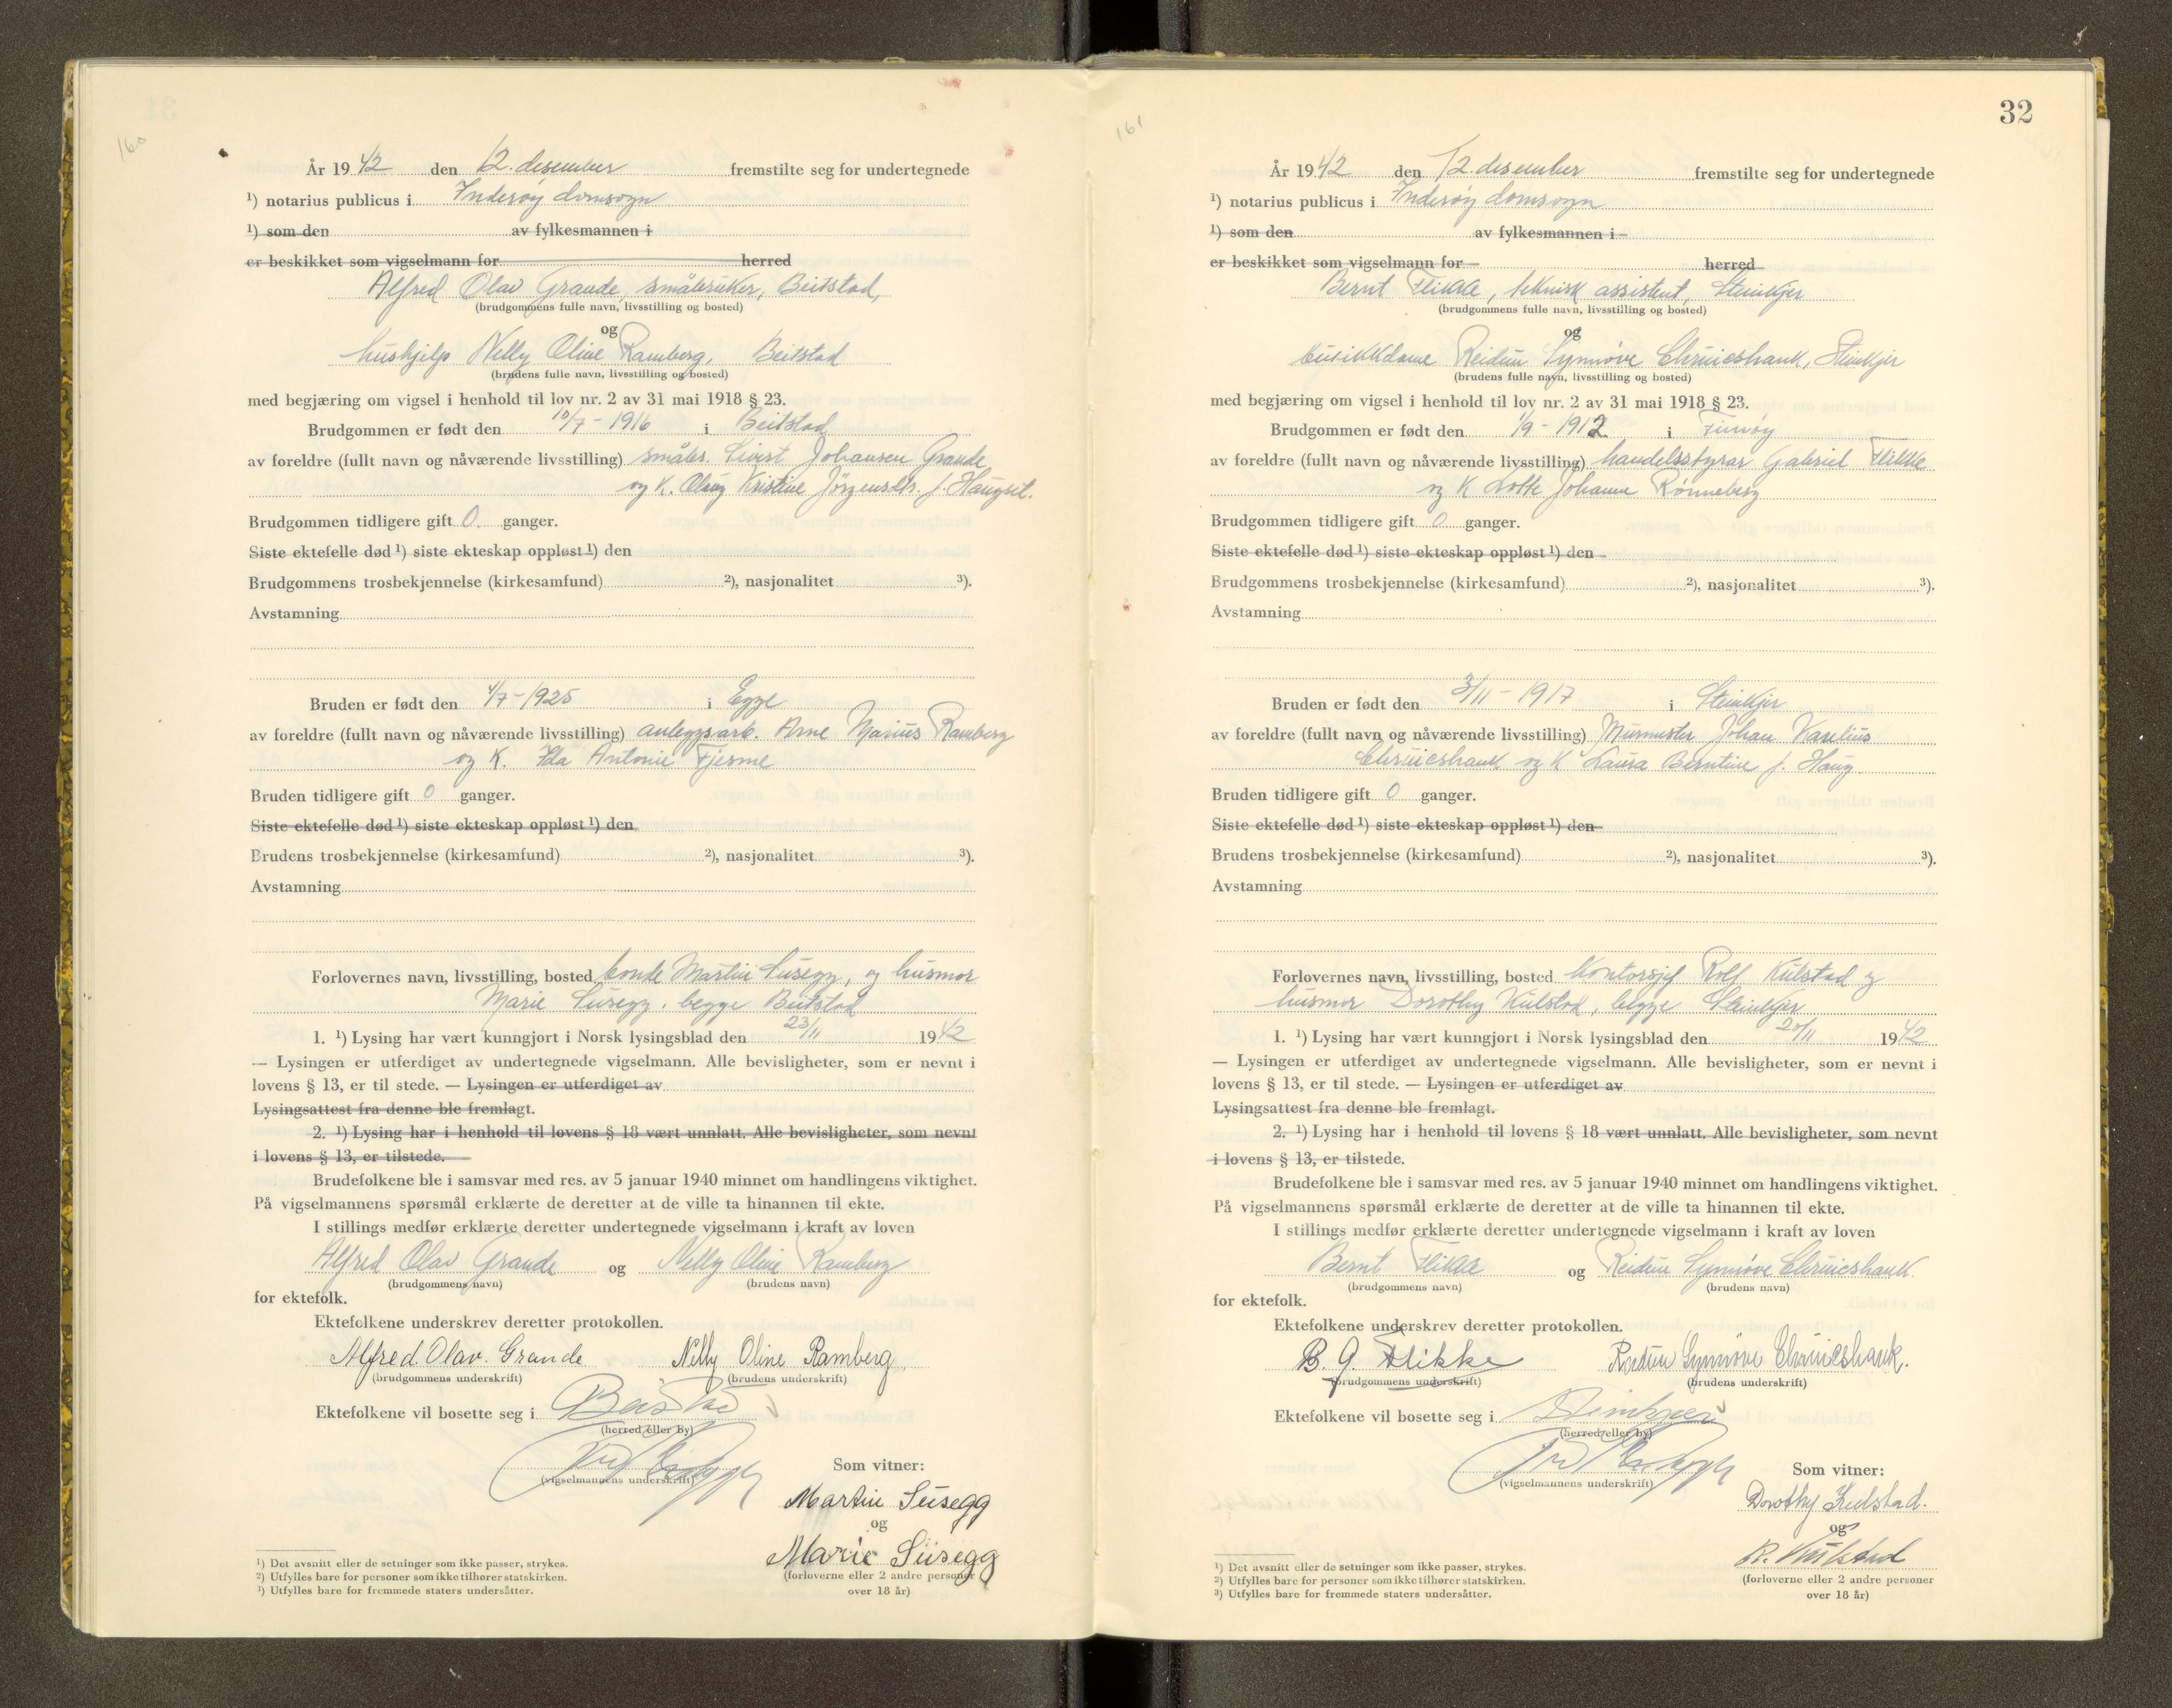 160
År 19 42 den 12. desember fremstilte seg for undertegnede
¹) notarius publicus i Inderøy domsogn
¹) som den av fylkesmannen i
er beskikket som vigselmann for herred
Alfred Olav Grande, småbruker, Beitstad,
(brudgommens fulle navn, livsstilling og bosted)
og
hushjelp Nelly Oline Ramberg, Beitstad
(brudens fulle navn, livsstilling og bosted)
med begjæring om vigsel i henhold til lov nr. 2 av 31 mai 1918 § 23.
Brudgommen er født den 10/7 - 1916 i Beitstad
av foreldre (fullt navn og nåværende livsstilling) småbr. Sivert Johansen Grande
og K. Olaug Kristine Jörgensdtr. f. Haugset.
Brudgommen tidligere gift 0. ganger.
Siste ektefelle død ¹) siste ekteskap oppløst ¹) den
Brudgommens trosbekjennelse (kirkesamfund) ²), nasjonalitet ³).
Avstamning
Bruden er født den 4/7 - 1925 i Egge
av foreldre (fullt navn og nåværende livsstilling) anleggsarb. Arne Marius Ramberg
og K. Ida Antonie Fjesme
Bruden tidligere gift 0 ganger.
Siste ektefelle død ¹) siste ekteskap oppløst ¹) den
Brudens trosbekjennelse (kirkesamfund) ²), nasjonalitet ³).
Avstamning
Forlovernes navn, livsstilling, bosted bonde Martin Süsegg, og husmor
Marie Süsegg, begge Beitstad
1. ¹) Lysing har vært kunngjort i Norsk lysingsblad den 23/11 1942
— Lysingen er utferdiget av undertegnede vigselmann. Alle bevisligheter, som er nevnt i
lovens § 13, er til stede. — Lysingen er utferdiget av
Lysingsattest fra denne ble fremlagt.
2. ¹) Lysing har i henhold til lovens § 18 vært unnlatt. Alle bevisligheter, som nevnt
i lovens § 13, er tilstede.
Brudefolkene ble i samsvar med res. av 5 januar 1940 minnet om handlingens viktighet.
På vigselmannens spørsmål erklærte de deretter at de ville ta hinannen til ekte.
I stillings medfør erklærte deretter undertegnede vigselmann i kraft av loven
Alfred Olav Grande og Nelly Oline Ramberg
(brudgommens navn) (brudens navn)
for ektefolk.
Ektefolkene underskrev deretter protokollen.
Alfred Olav. Grande Nelly Oline Ramberg
(brudgommens underskrift) (brudens underskrift)
Ektefolkene vil bosette seg i Beitstad
(herred eller by)
(vigselmannens underskrift)
Som vitner:
Martin Süsegg
og
Marie Süsegg
(forloverne eller 2 andre personer
over 18 år)
¹) Det avsnitt eller de setninger som ikke passer, strykes.
²) Utfylles bare for personer som ikke tilhører statskirken.
³) Utfylles bare for fremmede staters undersåtter.
161
32
År 19 42 den 12. desember fremstilte seg for undertegnede
¹) notarius publicus i Inderøy domsogn
¹) som den av fylkesmannen i
er beskikket som vigselmann for herred
Bernt Flikke, teknisk assistent, Steinkjer
(brudgommens fulle navn, livsstilling og bosted)
og
butikkdame Reidun Synnøve Chruicshank, Steinkjer
(brudens fulle navn, livsstilling og bosted)
med begjæring om vigsel i henhold til lov nr. 2 av 31 mai 1918 § 23.
Brudgommen er født den 1/9 - 1912 i
av foreldre (fullt navn og nåværende livsstilling) handelsstyrar Gabriel Flikke
og K Lotte Johanne Rønneberg
Brudgommen tidligere gift 0 ganger.
Siste ektefelle død ¹) siste ekteskap oppløst ¹) den
Brudgommens trosbekjennelse (kirkesamfund) ²), nasjonalitet ³).
Avstamning
Bruden er født den 3/11 - 1917 i Steinkjer
av foreldre (fullt navn og nåværende livsstilling) Murmester Johan Karelius
Chruicshank og K Laura Berntine f. Haug
Bruden tidligere gift 0 ganger.
Siste ektefelle død ¹) siste ekteskap oppløst ¹) den
Brudens trosbekjennelse (kirkesamfund) ²), nasjonalitet ³).
Avstamning
Forlovernes navn, livsstilling, bosted kontorsjef Rolf Kulstad og
husmor Dorothy Kulstad, begge Steinkjer
1. ¹) Lysing har vært kunngjort i Norsk lysingsblad den 20/11 1942
— Lysingen er utferdiget av undertegnede vigselmann. Alle bevisligheter, som er nevnt i
lovens § 13, er til stede. — Lysingen er utferdiget av
Lysingsattest fra denne ble fremlagt.
2. ¹) Lysing har i henhold til lovens § 18 vært unnlatt. Alle bevisligheter, som nevnt
i lovens § 13, er tilstede.
Brudefolkene ble i samsvar med res. av 5 januar 1940 minnet om handlingens viktighet.
På vigselmannens spørsmål erklærte de deretter at de ville ta hinannen til ekte.
I stillings medfør erklærte deretter undertegnede vigselmann i kraft av loven
Bernt Flikke og Reidun Synnøve Chruicshank.
(brudgommens navn) (brudens navn)
for ektefolk.
Ektefolkene underskrev deretter protokollen.
B. G. Flikke Reidun Synnøve Chruicshank.
(brudgommens underskrift) (brudens underskrift)
Ektefolkene vil bosette seg i Steinkjer
(herred eller by)
(vigselmannens underskrift)
Som vitner:
Dorothy Kulstad.
og
R. Kulstad
(forloverne eller 2 andre personer
over 18 år)
¹) Det avsnitt eller de setninger som ikke passer, strykes.
²) Utfylles bare for personer som ikke tilhører statskirken.
³) Utfylles bare for fremmede staters undersåtter.